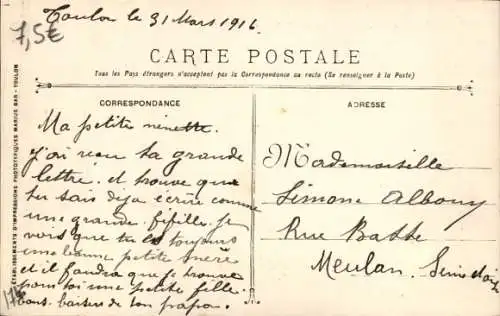 Toulon le 31 Mars 1916
7,5€
CARTE POSTALE
Tous les Pays étrangers n'acceptent pas la Correspondance au recto (Se renseigner à la Poste)
CORRESPONDANCE
Ma petite ninette.
j'ai reçu ta grande
lettre. et trouve que
tu sais deja ecrire comme
une grande fifille. je
vois que tu es toujours
une bonne petite
et il faudra que je trouve
pour toi une petite fille.
bons baisers de ton papa.
ADRESSE
Mademoiselle
Simone Albouy
Rue Basse
Meulan. Seine et Oise
ETABLISSEMENTS D'IMPRESSIONS PHOTOTYPIQUES MARIUS BAR - TOULON